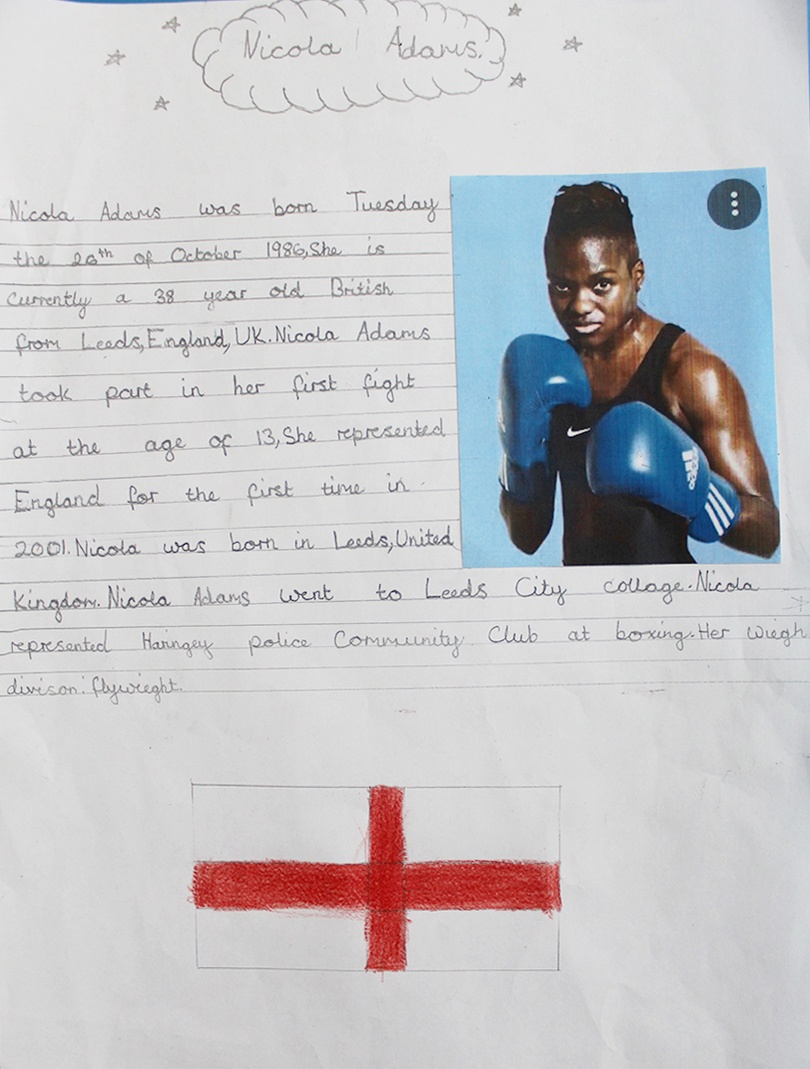 Nicola Adams.
Nicola Adams was born Tuesday
the 26th of October 1986,She is
Currently a 38 year old British
from Leeds,England,UK.Nicola Adams
took part in her first fight
at the age of 13,She represented
England for the first time in
2001.Nicola was born in Leeds,United
Kingdom.Nicola Adams went to Leeds City collage.Nicola
represented Haringey police Community Club at boxing.Her wiegh
divison:flywieght.